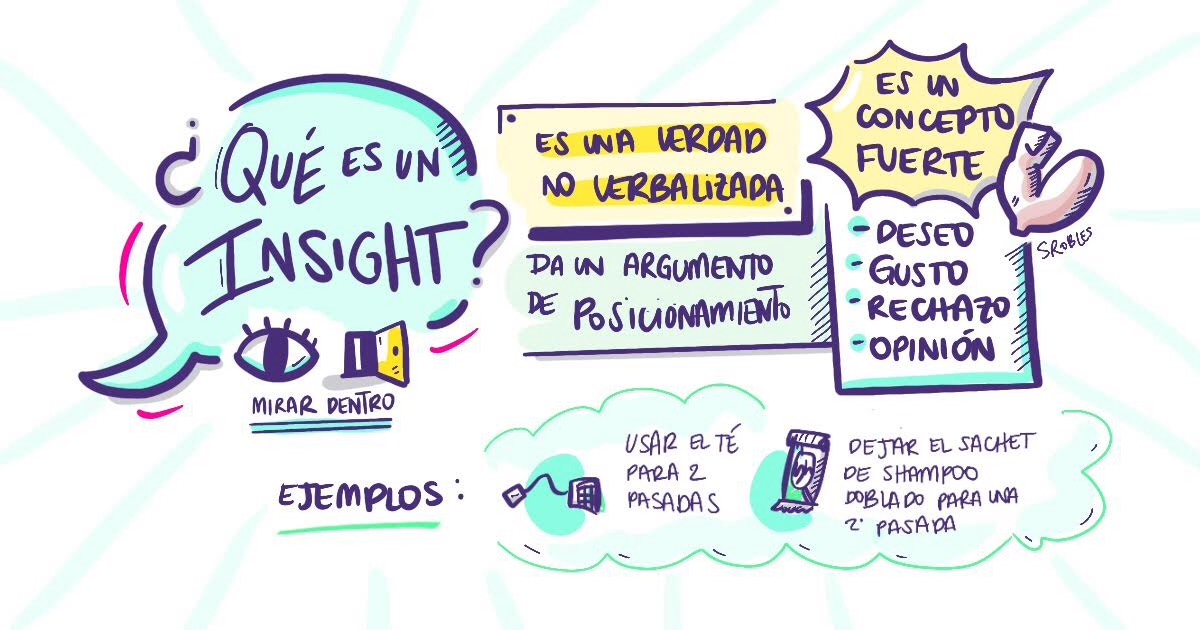 ¿QUÉ ES UN
INSIGHT?
MIRAR DENTRO
ES UNA VERDAD
NO VERBALIZADA
DA UN ARGUMENTO
DE POSICIONAMIENTO
ES UN
CONCEPTO
FUERTE
SROBLES
- DESEO
- GUSTO
- RECHAZO
- OPINIÓN
EJEMPLOS:
USAR EL TÉ
PARA 2
PASADAS
DEJAR EL SACHET
DE SHAMPOO
DOBLADO PARA UNA
2° PASADA